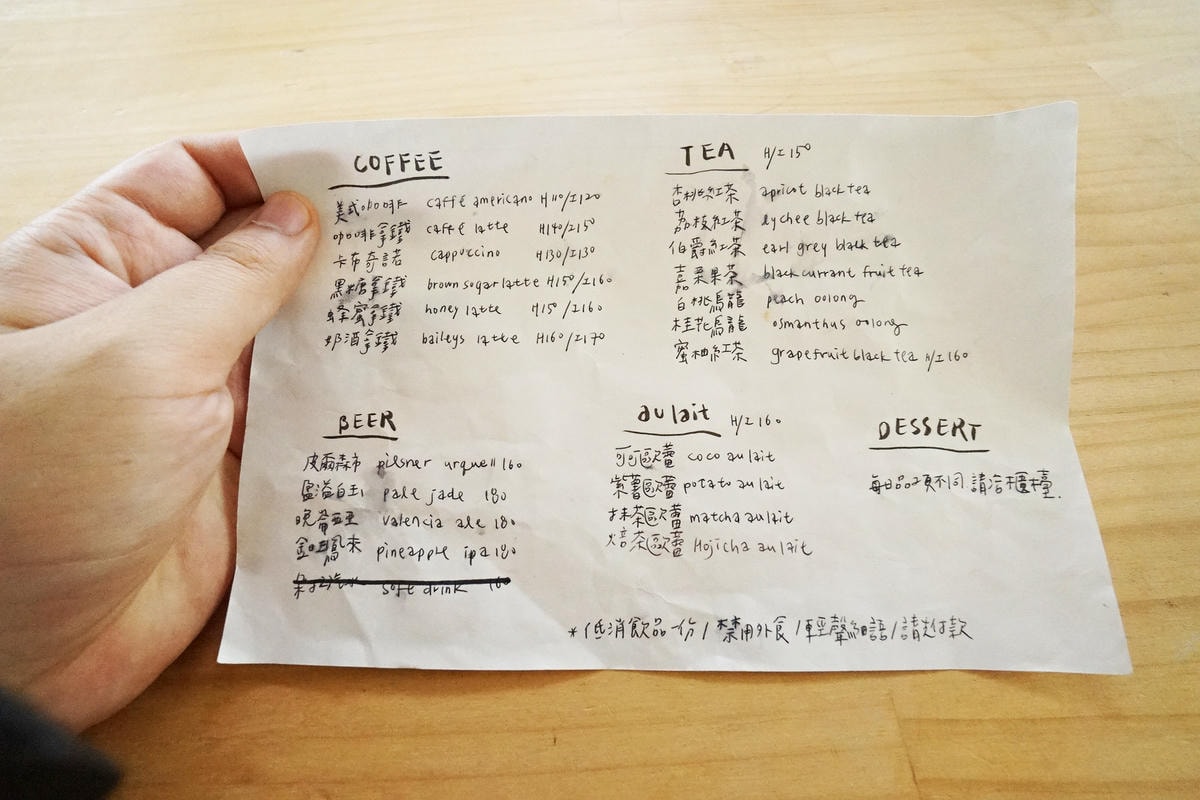 COFFEE
美式咖啡 caffé americano H110/I120
咖啡拿鐵 caffé latte H140/I150
卡布奇諾 cappuccino H130/I130
黑糖拿鐵 brown sugar latte H150/I160
蜂蜜拿鐵 honey latte H150/I160
奶酒拿鐵 baileys latte H160/I170
TEA H/I 150
杏桃紅茶 apricot black tea
荔枝紅茶 lychee black tea
伯爵紅茶 earl grey black tea
嘉栗果茶 blackcurrant fruit tea
白桃烏龍 peach oolong
桂花烏龍 osmanthus oolong
蜜柚紅茶 grapefruit black tea H/I 160
BEER
皮爾森市 pilsner urquell 160
pale jade 180
valencia ale 180
pineapple ipa 180
soft drink 160
au lait H/I 160
可可歐蕾 coco au lait
紫薯歐蕾 potato au lait
抹茶歐蕾 matcha au lait
焙茶歐蕾 Hojicha au lait
DESSERT
每日品項不同 請洽櫃檯.
*低消飲品一份/禁用外食/輕聲細語/請先付款